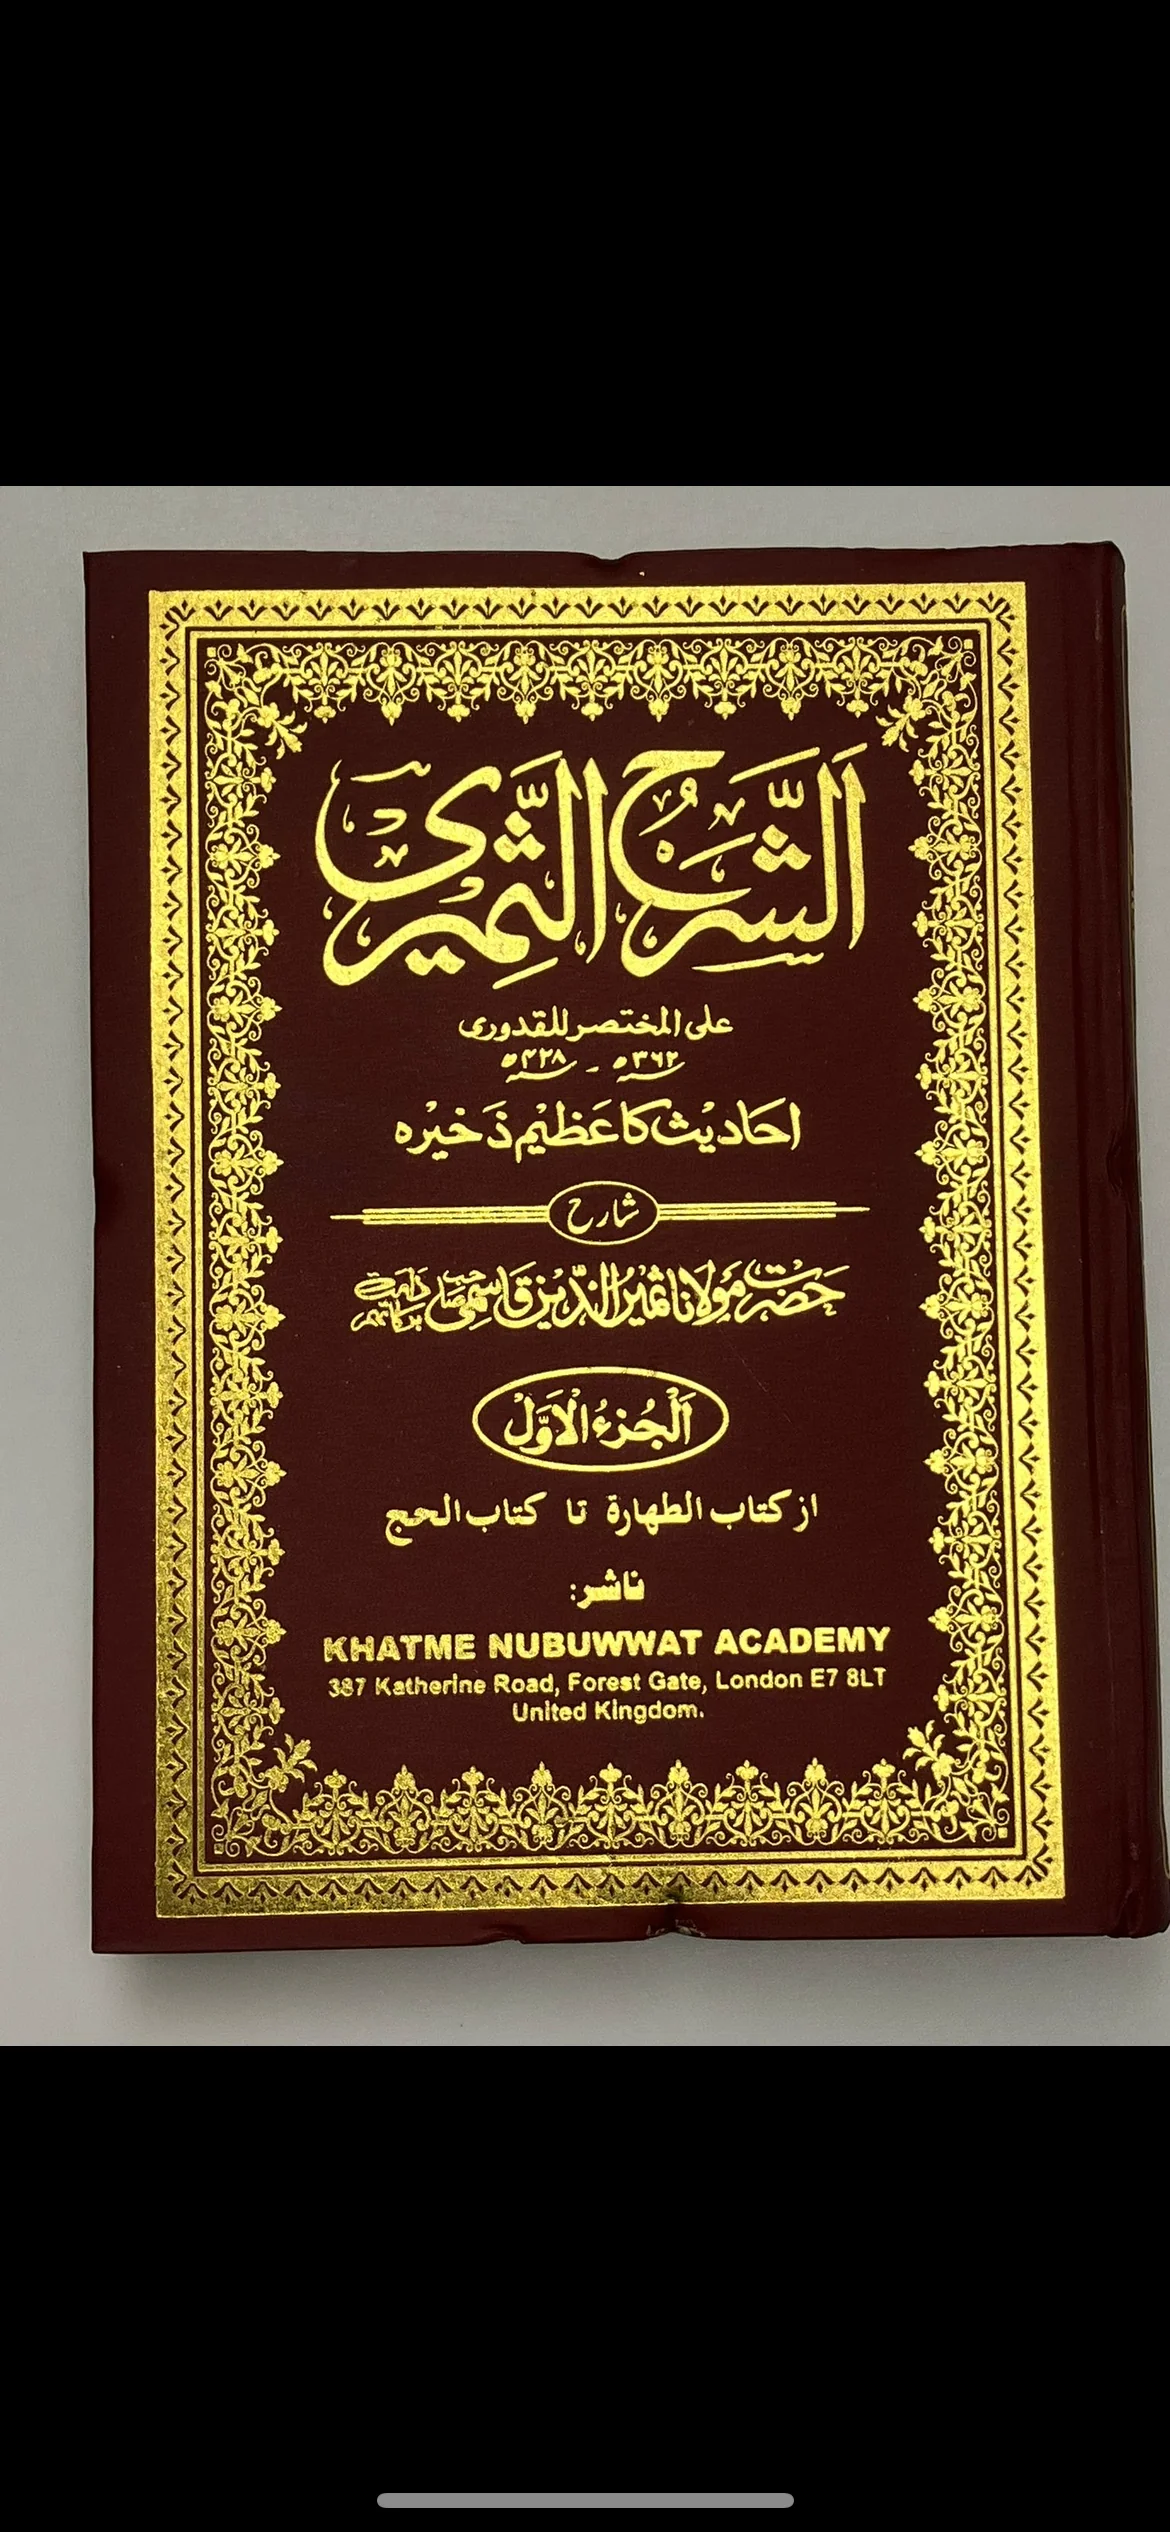 اَلشَّرْحُ الثَّمِيْرِى
على المختصر للقدورى
٣٦٢ھ - ٤٢٨ھ
احَادِيْث كا عَظِيْم ذَخِيْره
شارح
حَضرت مَولانا ثمیرُ الدّین قاسمی صاحب دامت برکاتہم
اَلْجُزءُ الْاَوَّلْ
از كتاب الطهارة تا كتاب الحج
ناشر:
KHATME NUBUWWAT ACADEMY
387 Katherine Road, Forest Gate, London E7 8LT
United Kingdom.